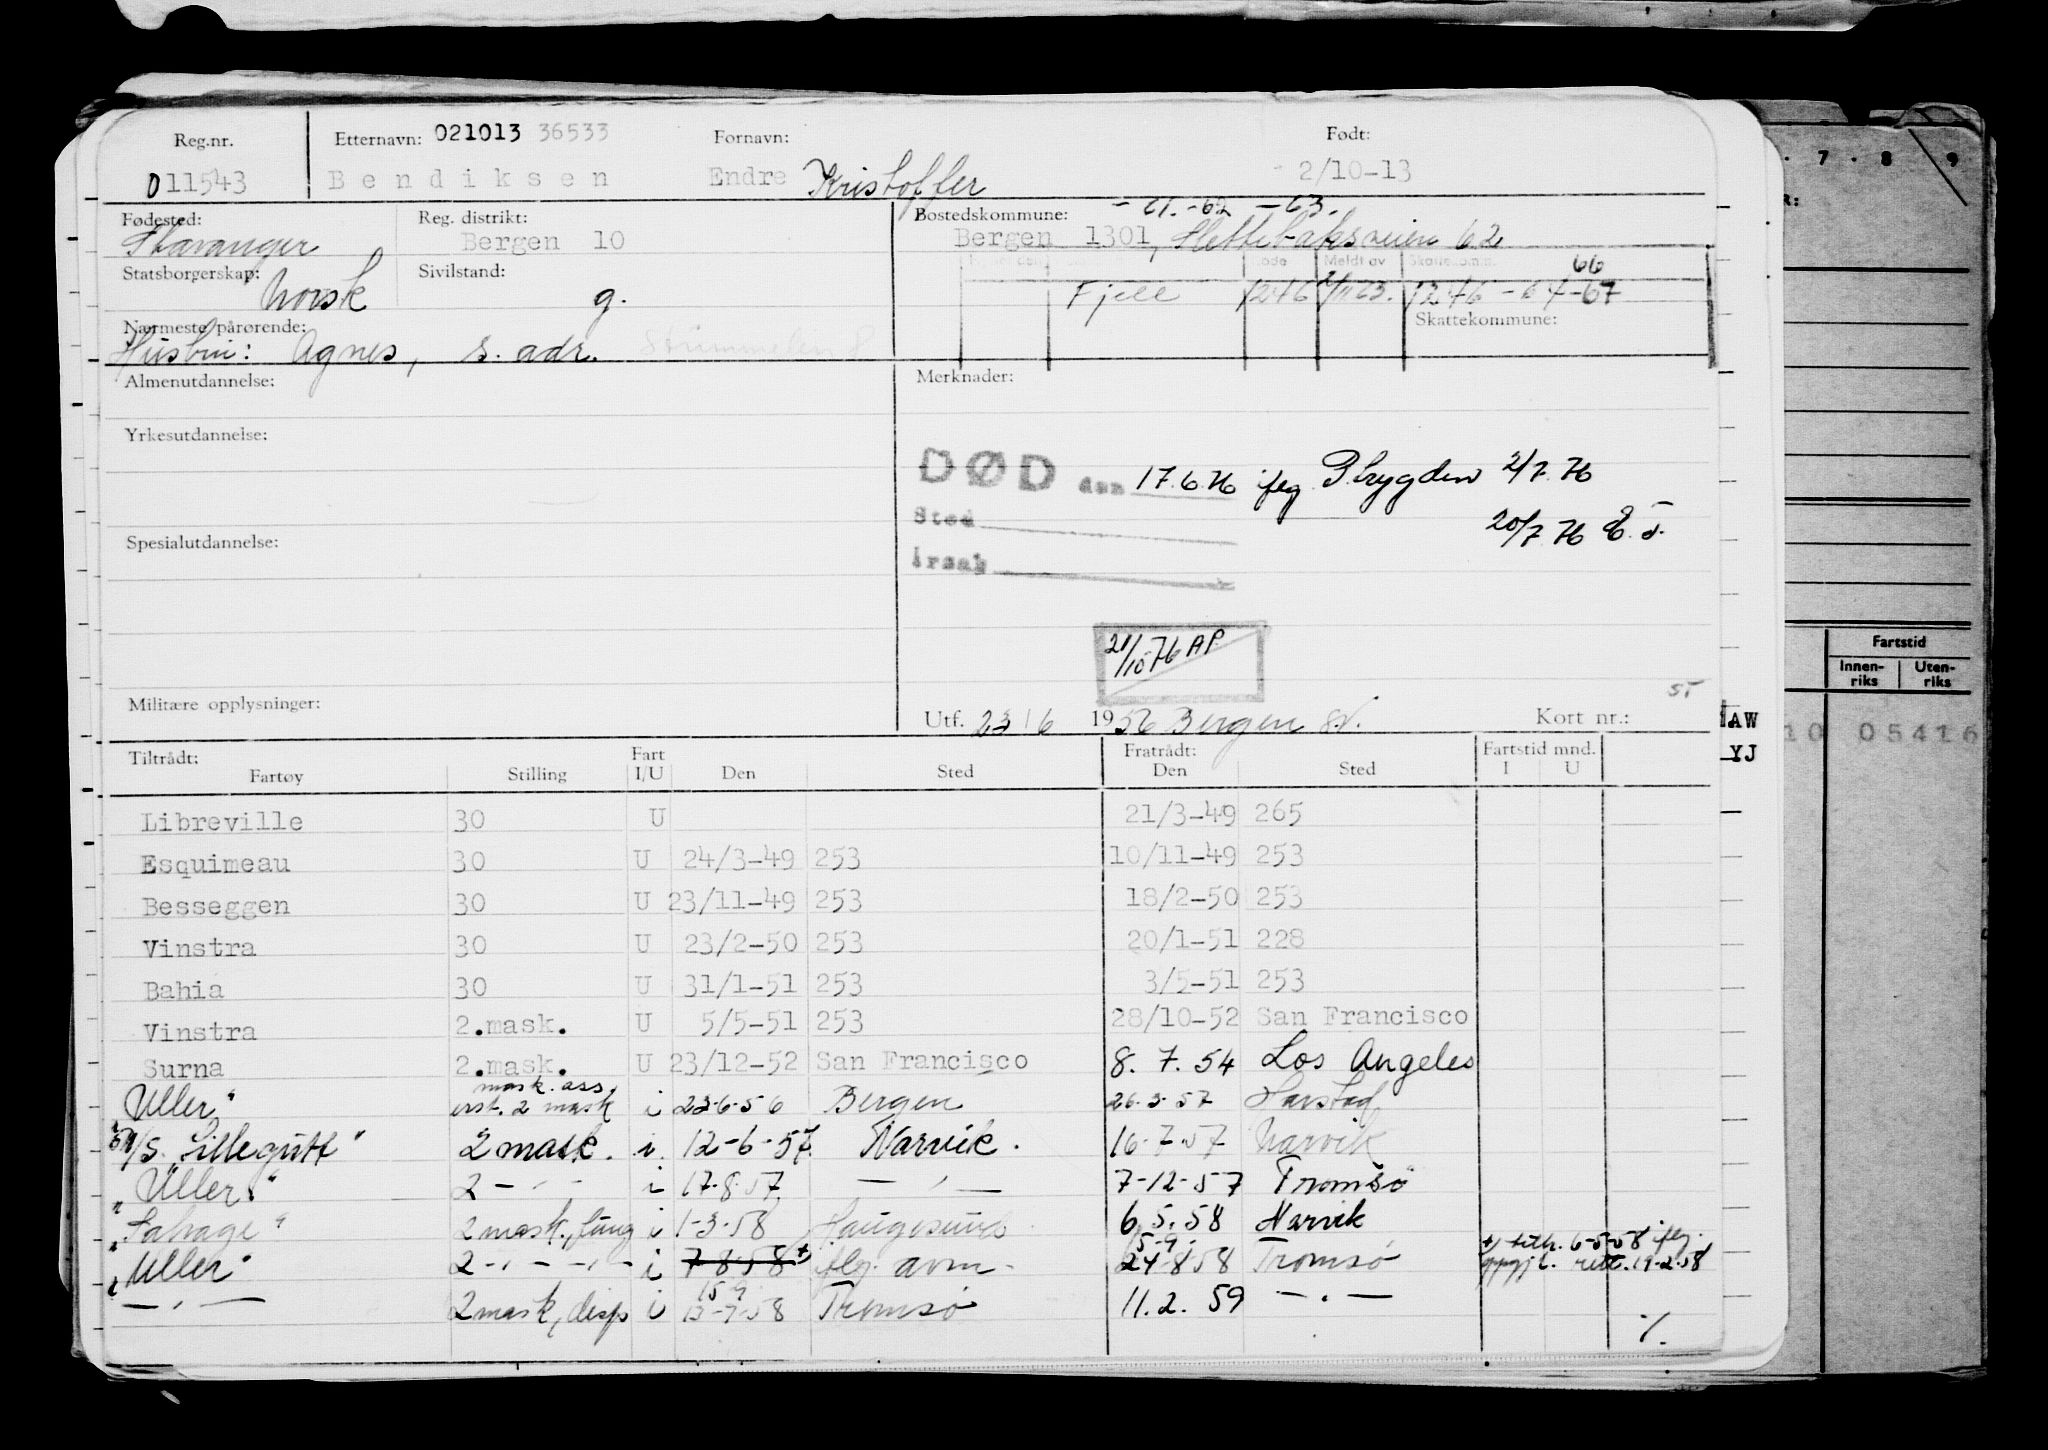 Reg.nr. Etternavn: 021013 36533 Fornavn: Født:
011543 Bendiksen Endre Kristoffer 2/10-13
Fødested: Reg. distrikt: Bostedskommune: -61.-62 -63.
Stavanger Bergen 10 Bergen 1301, Slettebaksveien 62
Statsborgerskap: Sivilstand: Kode Meldt av Skattekomm. 66
Norsk g. Fjell 1246 1246 - 64 -67
Nærmeste pårørende: Skattekommune:
Hustru: Agnes, s. adr.
Almenutdannelse: Merknader:
Yrkesutdannelse:
DØD den 17.6.76 iflg Trygden 2/7.76
Sted 20/7.76
Spesialutdannelse:
Årsak
21/10-76 AP
Militære opplysninger: Utf. 23/6 1956 Bergen Kort nr.:
Tiltrådt: Fart Fratrådt: Fartstid mnd.
Fartøy Stilling I/U Den Sted Den Sted I U
Libreville 30 U 21/3-49 265
Esquimeau 30 U 24/3-49 253 10/11-49 253
Besseggen 30 U 23/11-49 253 18/2-50 253
Vinstra 30 U 23/2-50 253 20/1-51 228
Bahia 30 U 31/1-51 253 3/5-51 253
Vinstra 2.mask. U 5/5-51 253 28/10-52 San Francisco
Surna 2.mask. U 23/12-52 San Francisco 8. 7. 54 Los Angeles
mask. ass.
Uller" 2 mask i 23-6-56 Bergen 26.3.57 Harstad
M/S. Lillegutt" 2 mask. i. 12-6-57. Narvik. 16-7-57 Narvik
"Uller" 2 - " - i 17-8-57 — " — 7-12-57 Tromsø
"Salvage" 2 mask., fung i 1-3-58 Haugesund 6.5.58 Narvik
"Uller" 2 - " - - " - i 7-8-58 + iflg. avm. 24-8-58 Tromsø +) tiltr. 6-5-58 iflg.
15-9 15-9
— " — 2 mask, disp i 13-9-58 Tromsø 11.2. 59 — " —
7 8 9
Fartstid
Innen-riks Uten-riks
AW
YJ
10 05416